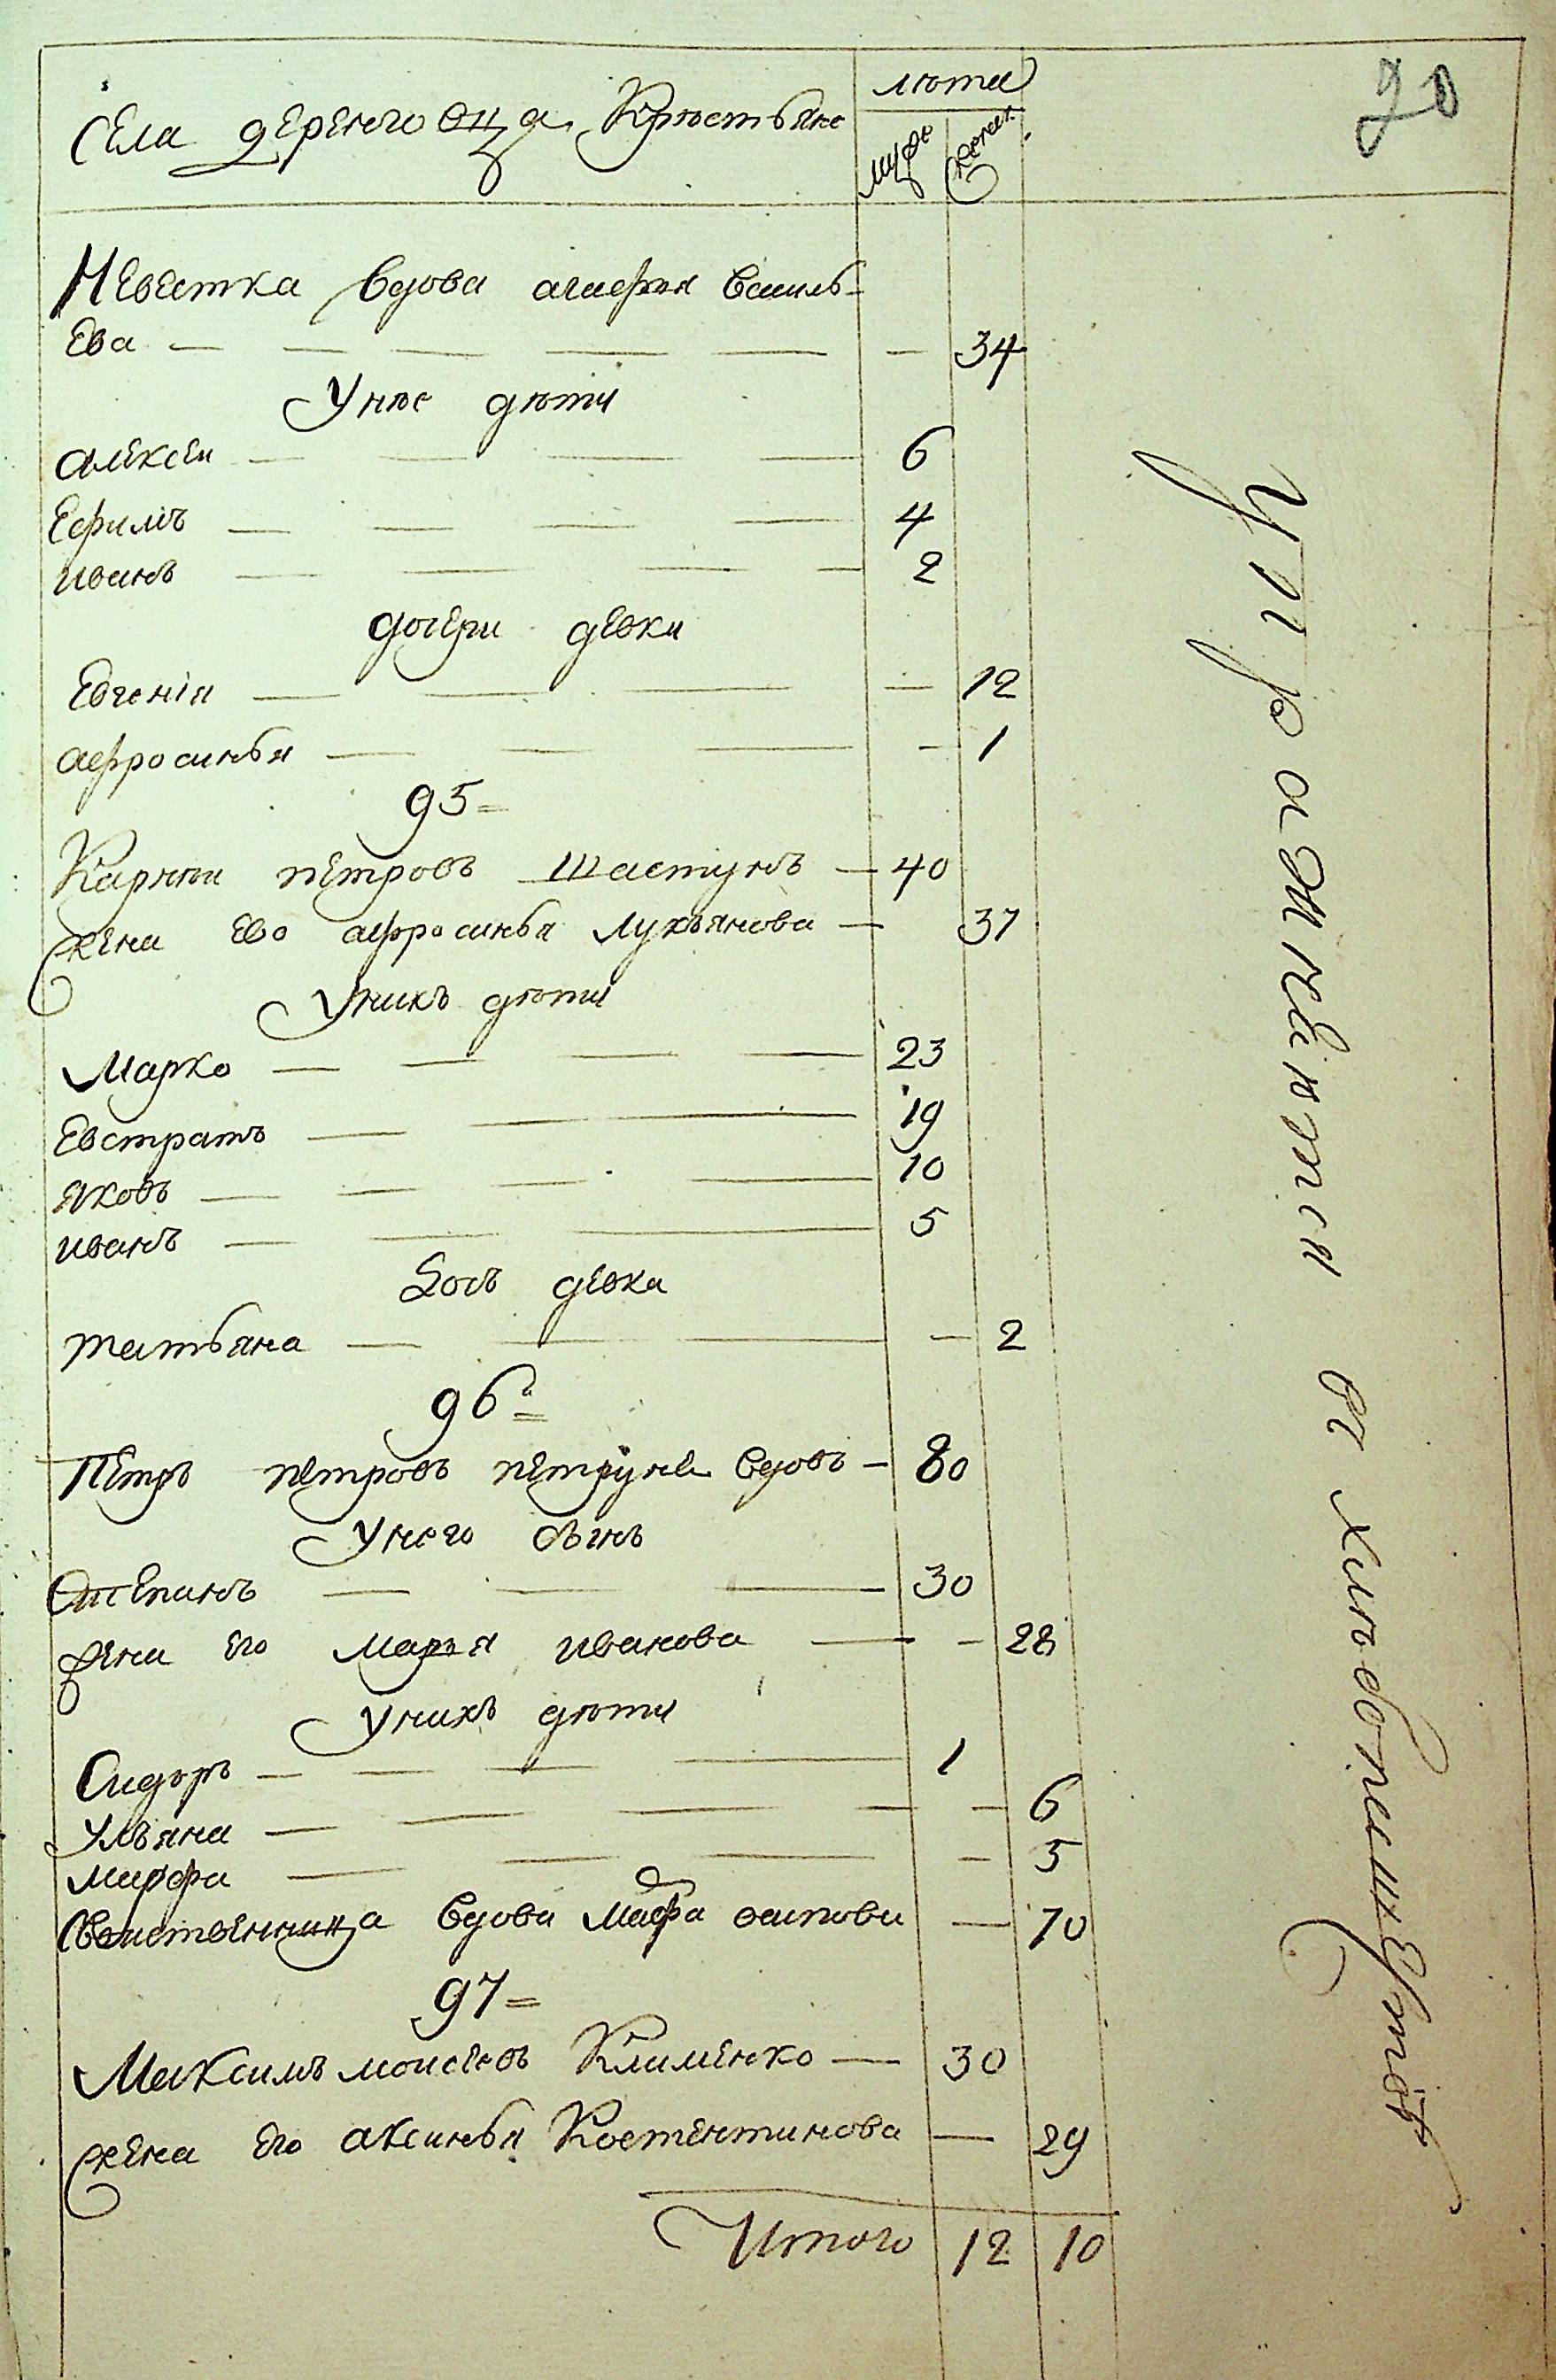 20
Села деренговца Крѣстьяне
лѣта
муже
женс:
Невестка вдова агафия василь-
ева — 34
у нѣе дѣти
алексеи — 6
Ефимъ — 4
иванъ — 2
дочери девки
Евгенія — 12
афросинья — 1
95=
Карпъи петровъ шастунъ — 40
жена ево афросинья лукъянова — 37
у никъ дѣти
Марко — 23
Евстратъ — 19
яковъ — 10
иванъ — 5
Доч девка
татьяна — 2
96=
Петръ петровъ вдовъ — 80
у него сынъ
Степанъ — 30
жена его марья иванова — 28
у нихъ дѣти
Сидоръ — 1
ульяна — 6
марфа — 5
Свойственница вдова Марфа осипова — 70
97=
Максимъ моисеевъ Клименко — 30
жена его аксинья Костентинова — 29
Итого 12 10
упражняются в хлѣбопашествѣ